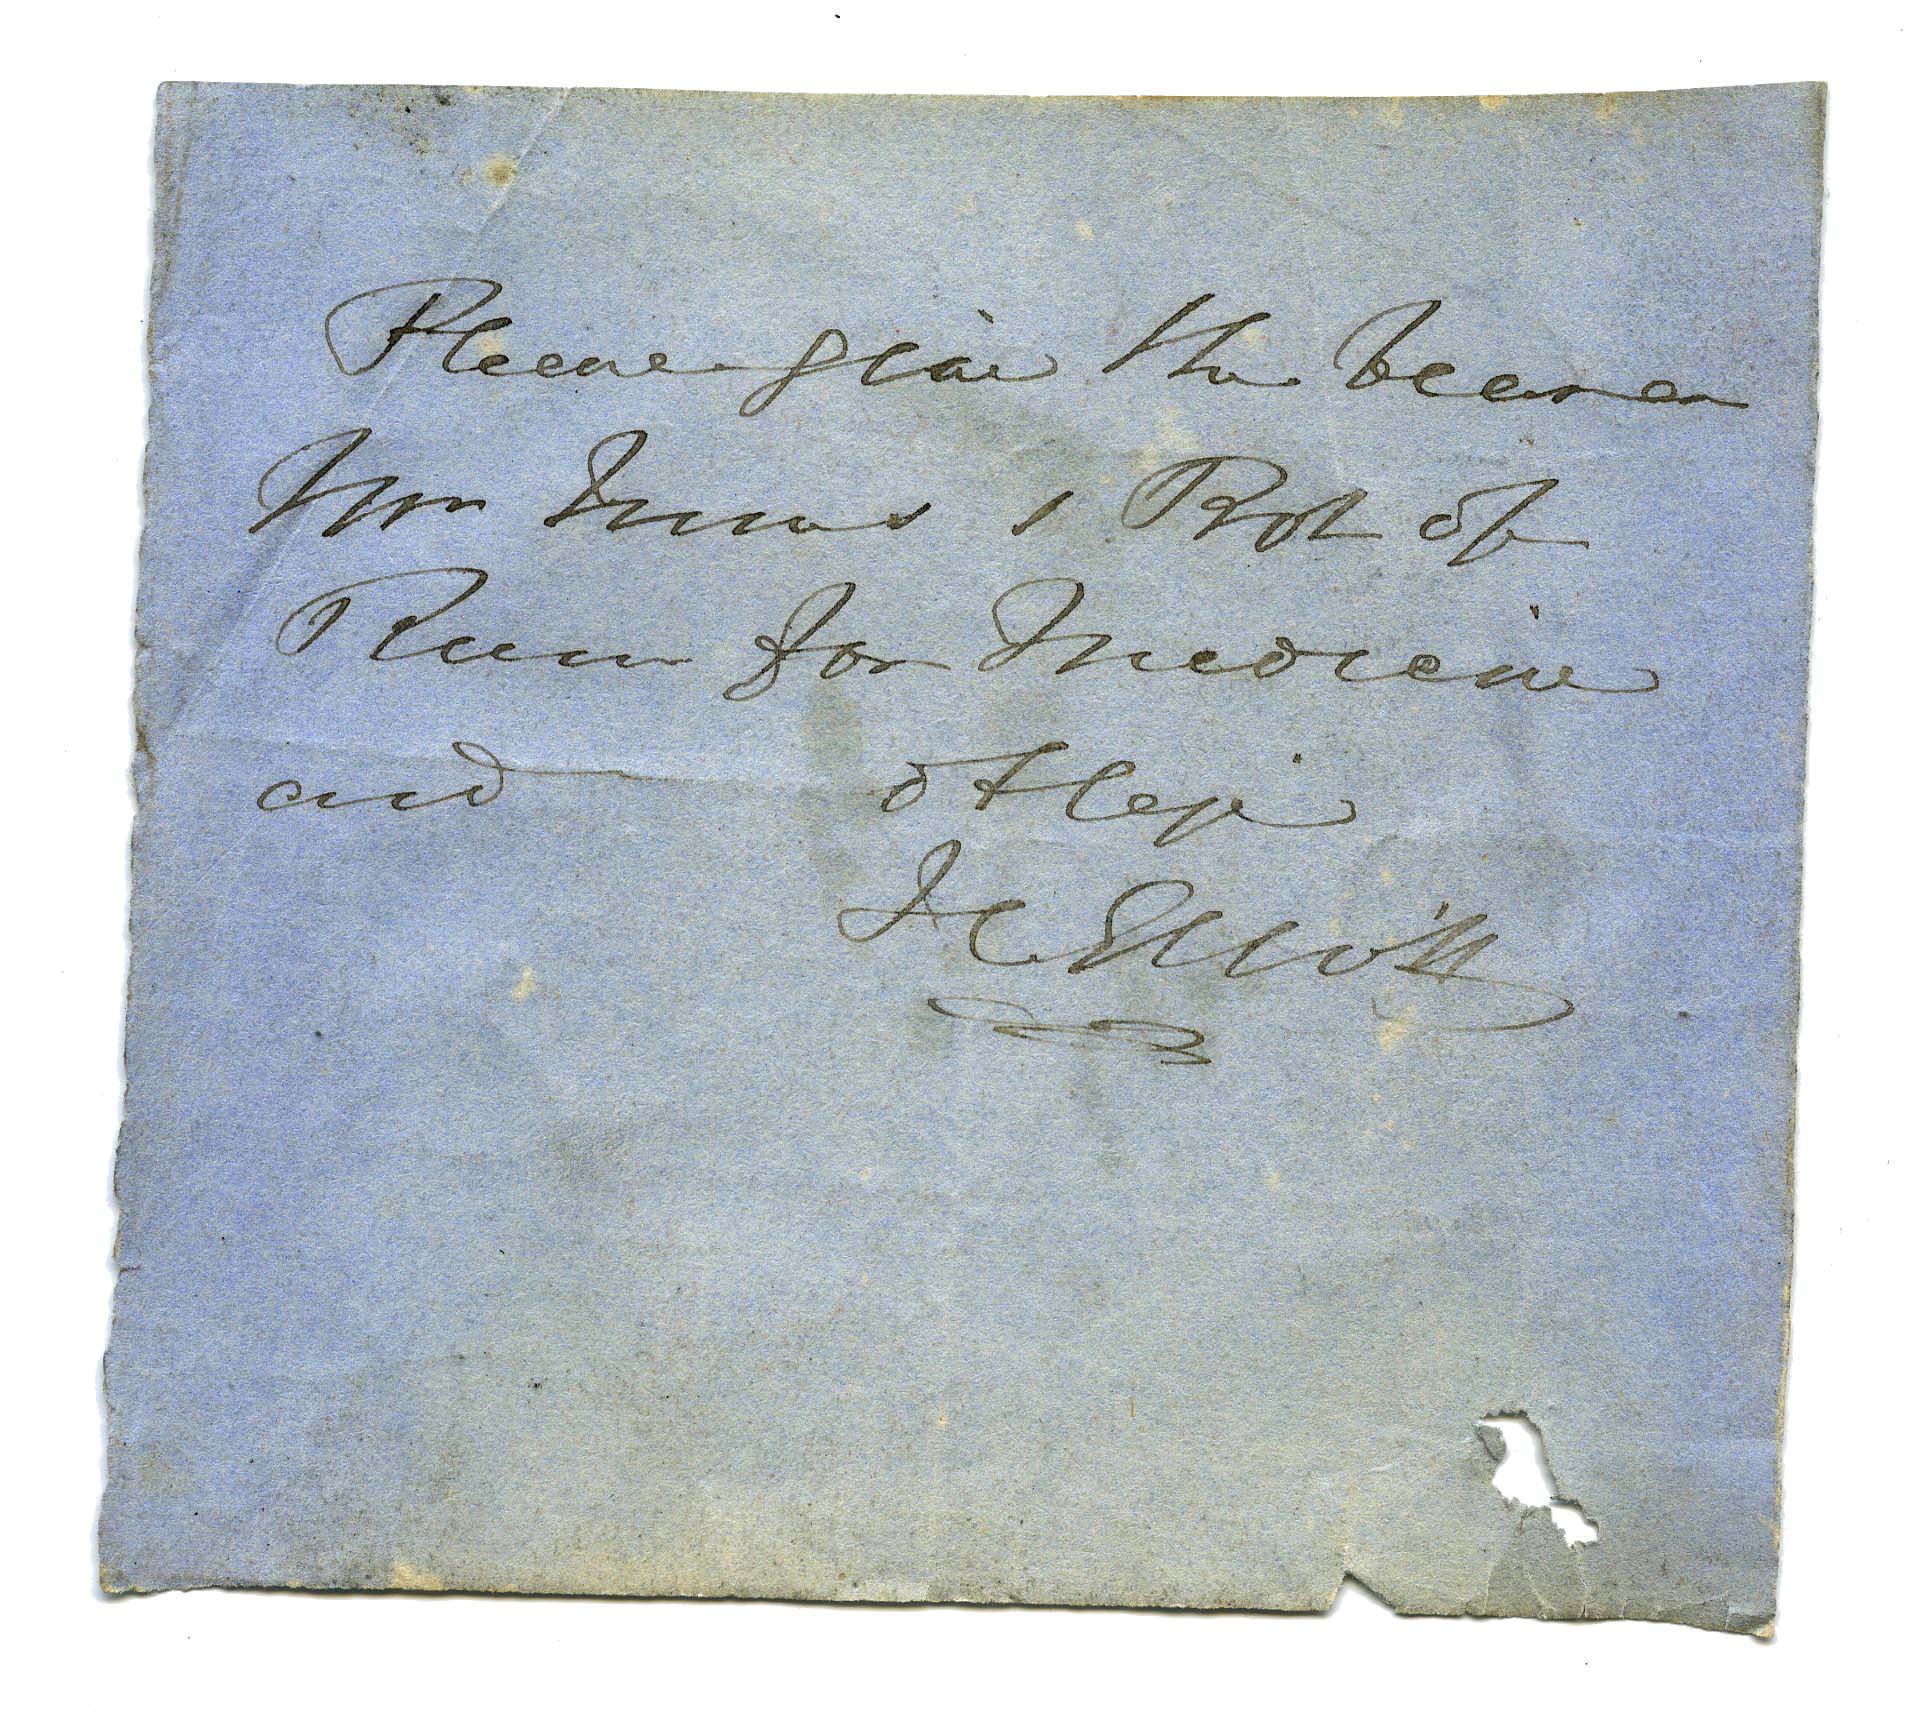 Please give the bearer
Mr 1 Bot of
Rum for Medicine
and oblige
J C Elliott